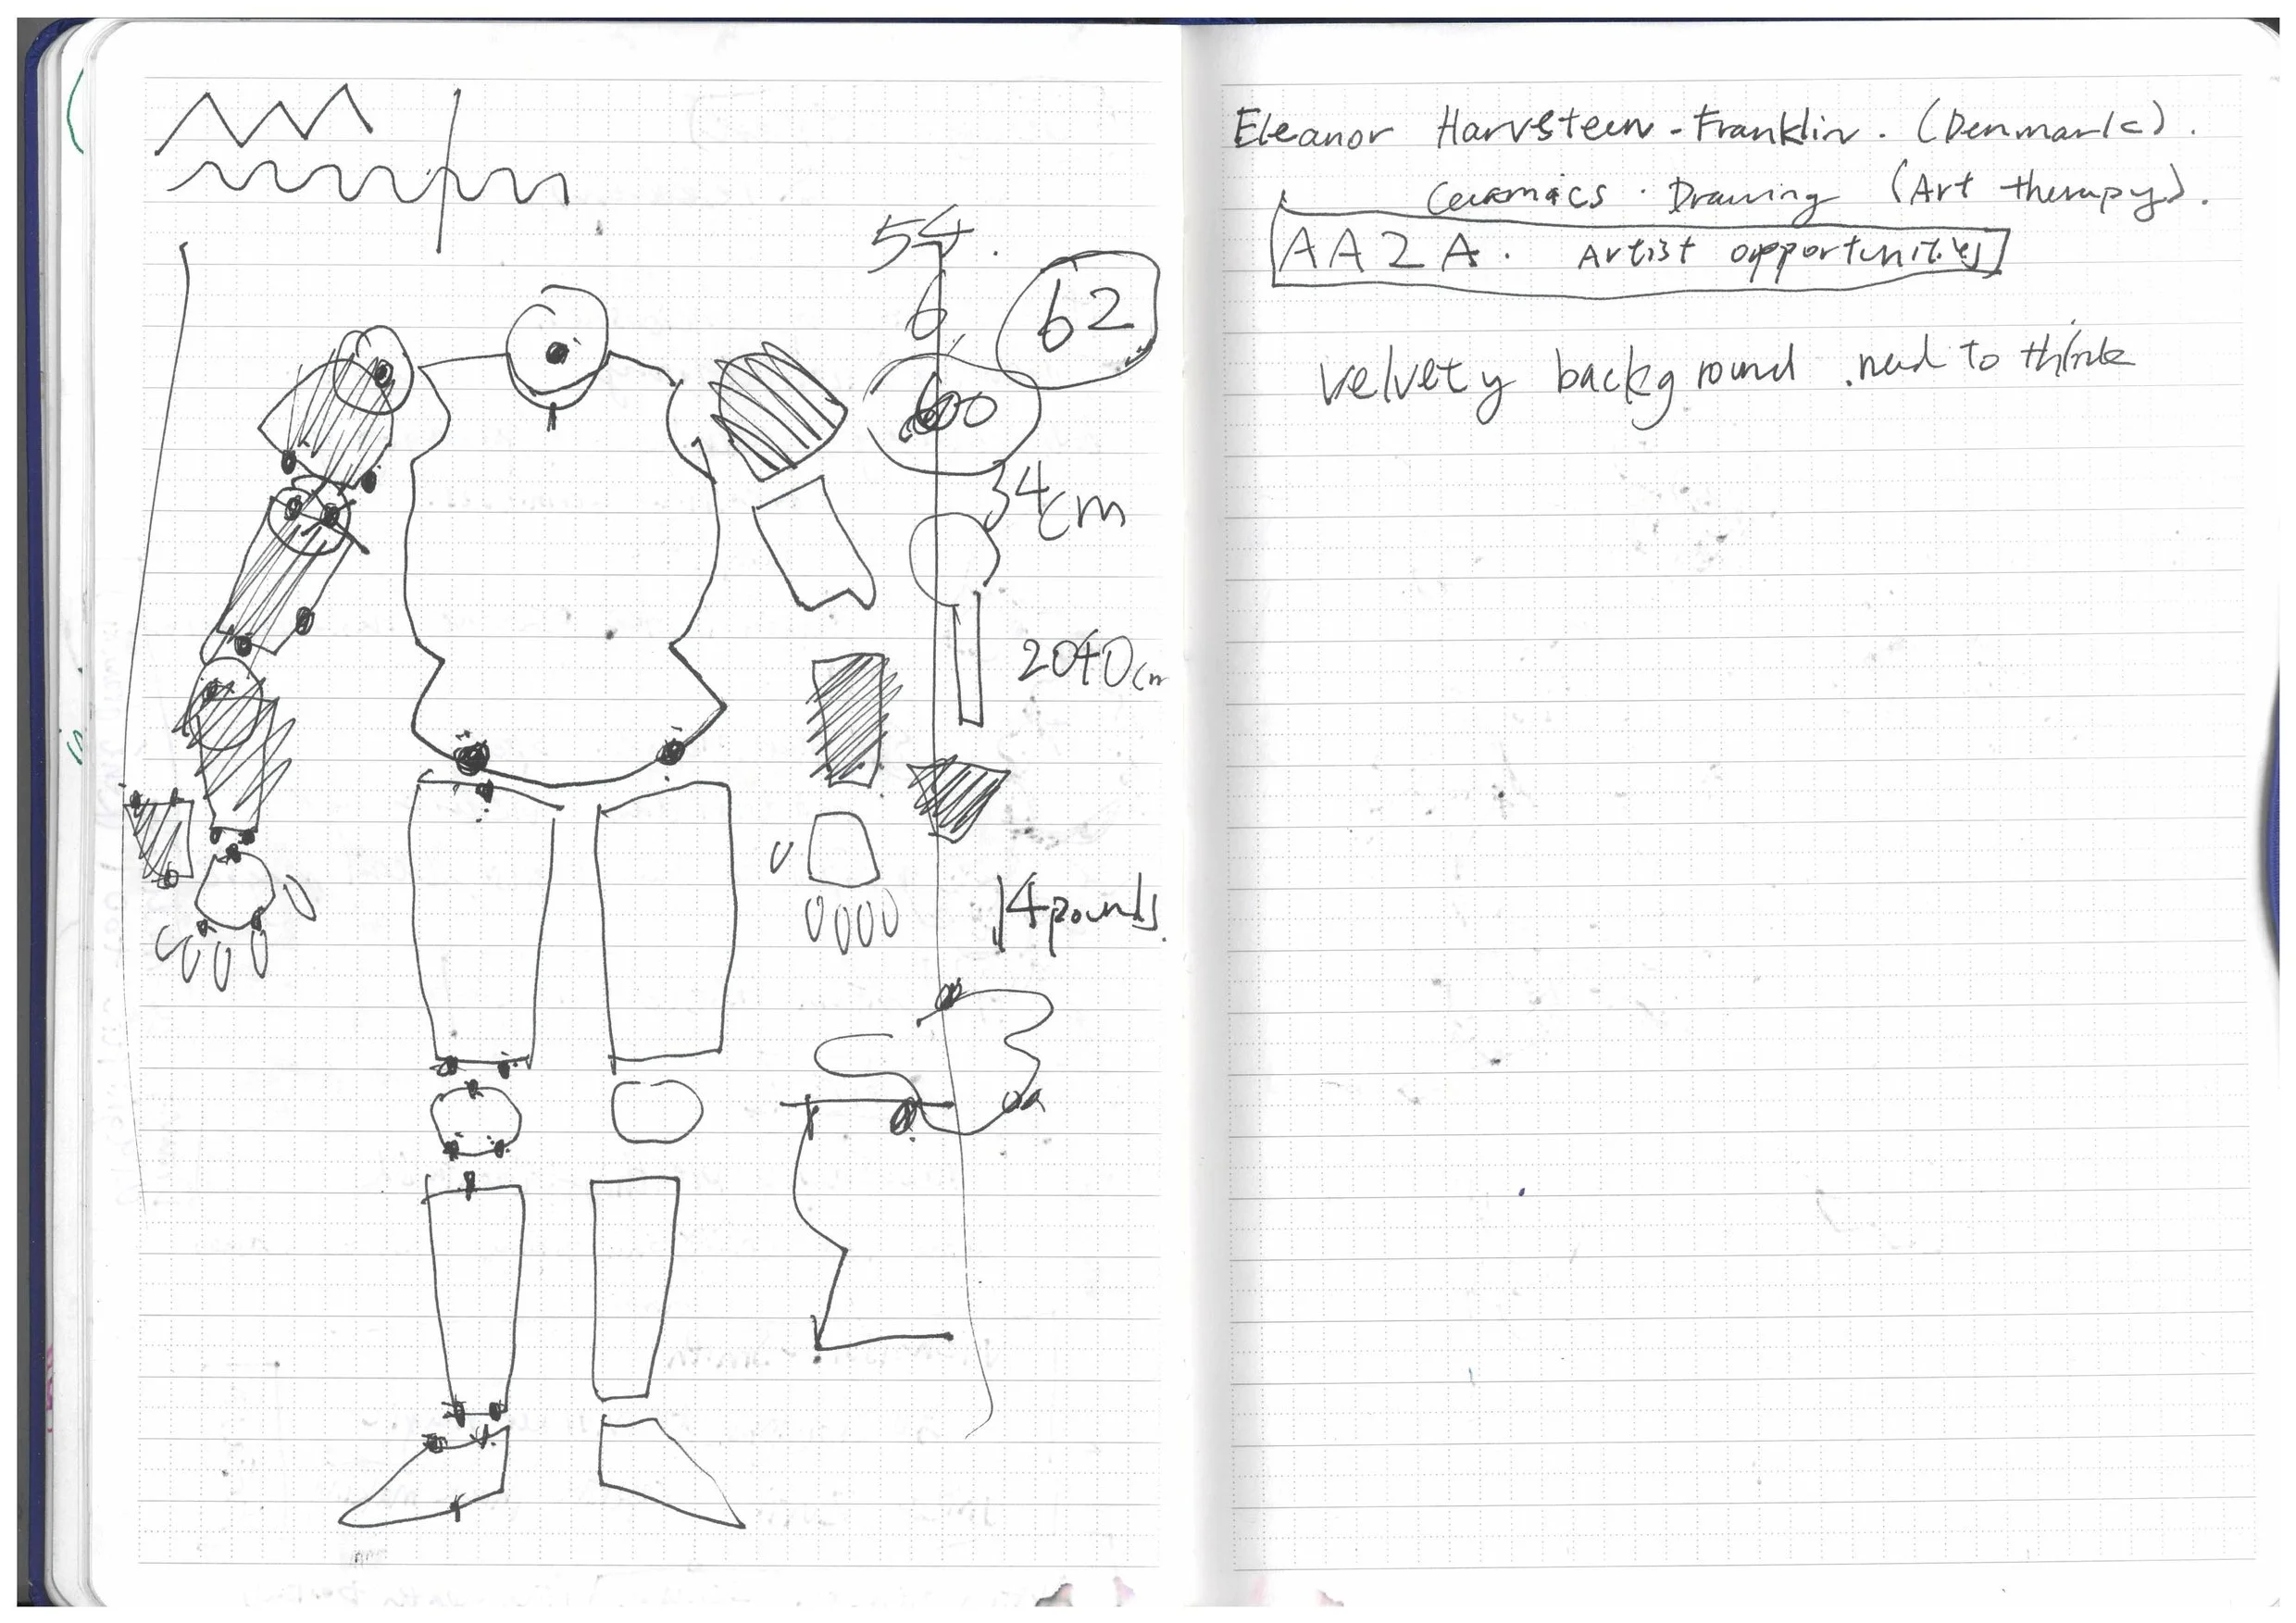 54.
6
62
600
34cm
2040cm
14 pounds.
Eleanor Harvsteen-Franklin. (Denmark).
Ceramics. Drawing (Art therapy).
AA2A. Artist opportunities
velvety background. need to think